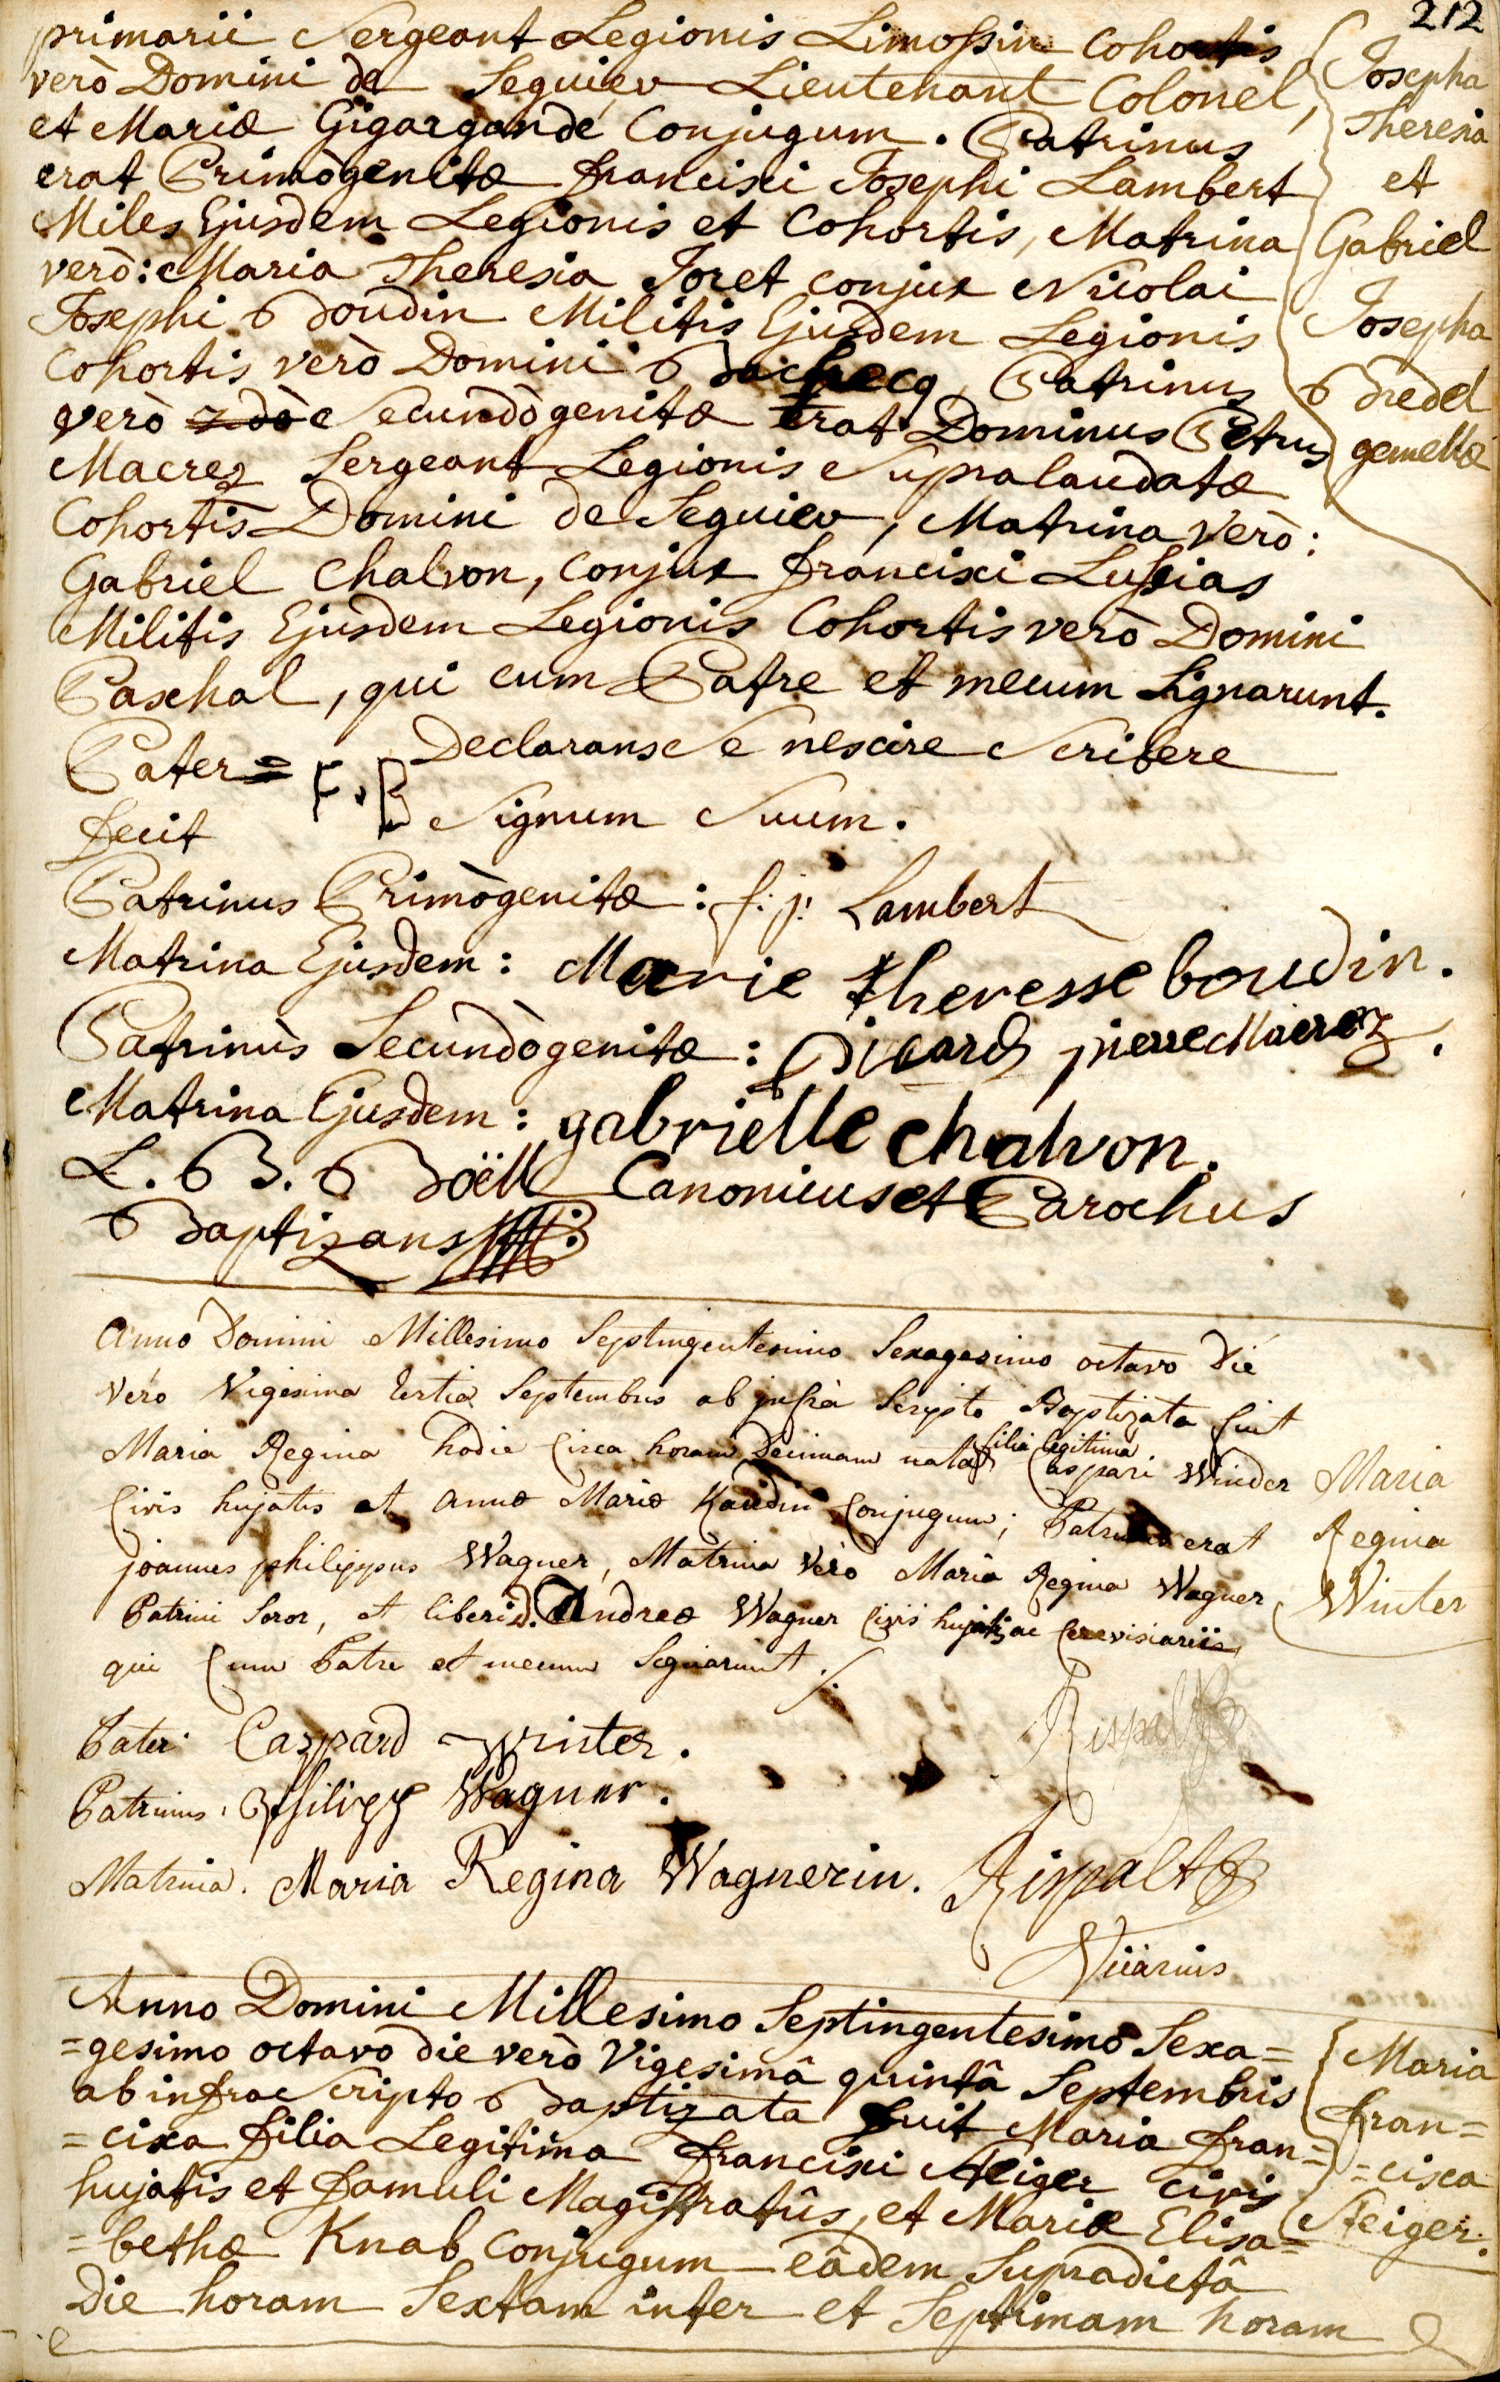 212
primarii Sergeant Legionis Limossin Cohortis
verò Domini de Seguiev Lieutenant Colonel,
et Mariæ Gigargande Conjugum. Patrinus
erat Primògenitæ francisci Josephi Lambert
Miles Ejusdem Legionis et Cohortis, Matrina
verò: Maria Theresia Joret conjux Nicolai
Josephi Boudin Militis Ejusdem Legionis
Cohortis verò Domini Patrinus
verò Secundògenitæ Erat Dominus Petrus
Macrez Sergeant Legionis Supralaudatæ
Cohortis Domini de Seguiev, Matrina Verò:
Gabriel Chalvon, Conjux francisci Lussias
Militis Ejusdem Legionis Cohortis verò Domini
Paschal, qui cum Patre et mecum Signarunt.
Josepha
Theresia
et
Gabriel
Josepha
Bredel
gemellæ
Pater = F. B Declarans Se nescire Scribere
fecit Signum Suum.
Patrinus Primògenitæ: f: j: Lambert
Matrina Ejusdem: Marie theresse boudin.
Patrinùs Secundògenitæ: Picard pierre Macrez.
Matrina Ejusdem: gabrielle chalvon.
L. B. Boëll Canonicus et Parochus
Baptizans
Anno Domini Millesimo Septingentesimo Sexagesimo octavo Die
Vero Vigesima Tertia Septembris ab jnfrà Scripto Baptizata fuit
Maria Regina hodie Circa horam Decimam nata filia legitima Caspari Winder
Civis hujatis et Annæ Mariæ Kaudin Conjugum; Patrinus erat
joannes philippus Wagner, Matrina Vero Maria Regina Wagner
Patrini Soror, et liberi D. Andreæ Wagner Civis hujatis ac Cerevisiarii
qui Cum Patre et mecum Signarunt ./.
Maria
Regina
Winter
Rispalt
Pater: Caspard Winter.
Patrinus: Philipp Wagner.
Matrina. Maria Regina Wagnerin. Rispalt
Vicarius
Anno Domini Millesimo Septingentesimo Sexa=
=gesimo octavo die verò Vigesimâ quintâ Septembris
ab infra Scripto Baptizata fuit Maria fran=
=cisca filia Legitima francisci Steiger Civis
hujatis et famuli Magistratûs, et Mariæ Elisa=
=bethæ Knab Conjugum eâdem Supradictâ
Die horam Sextam inter et Septimam horam
Maria
fran=
=cisca
Steiger.